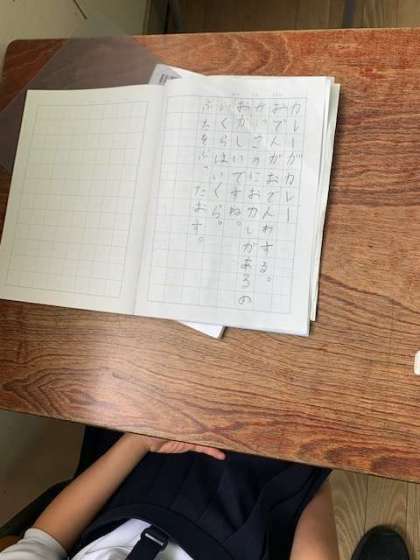 カレーがカレー
おでんがおでんわする。
におカしがあるの
おかしいですね。
いくらはいくら。
ぶたをぶったおす。